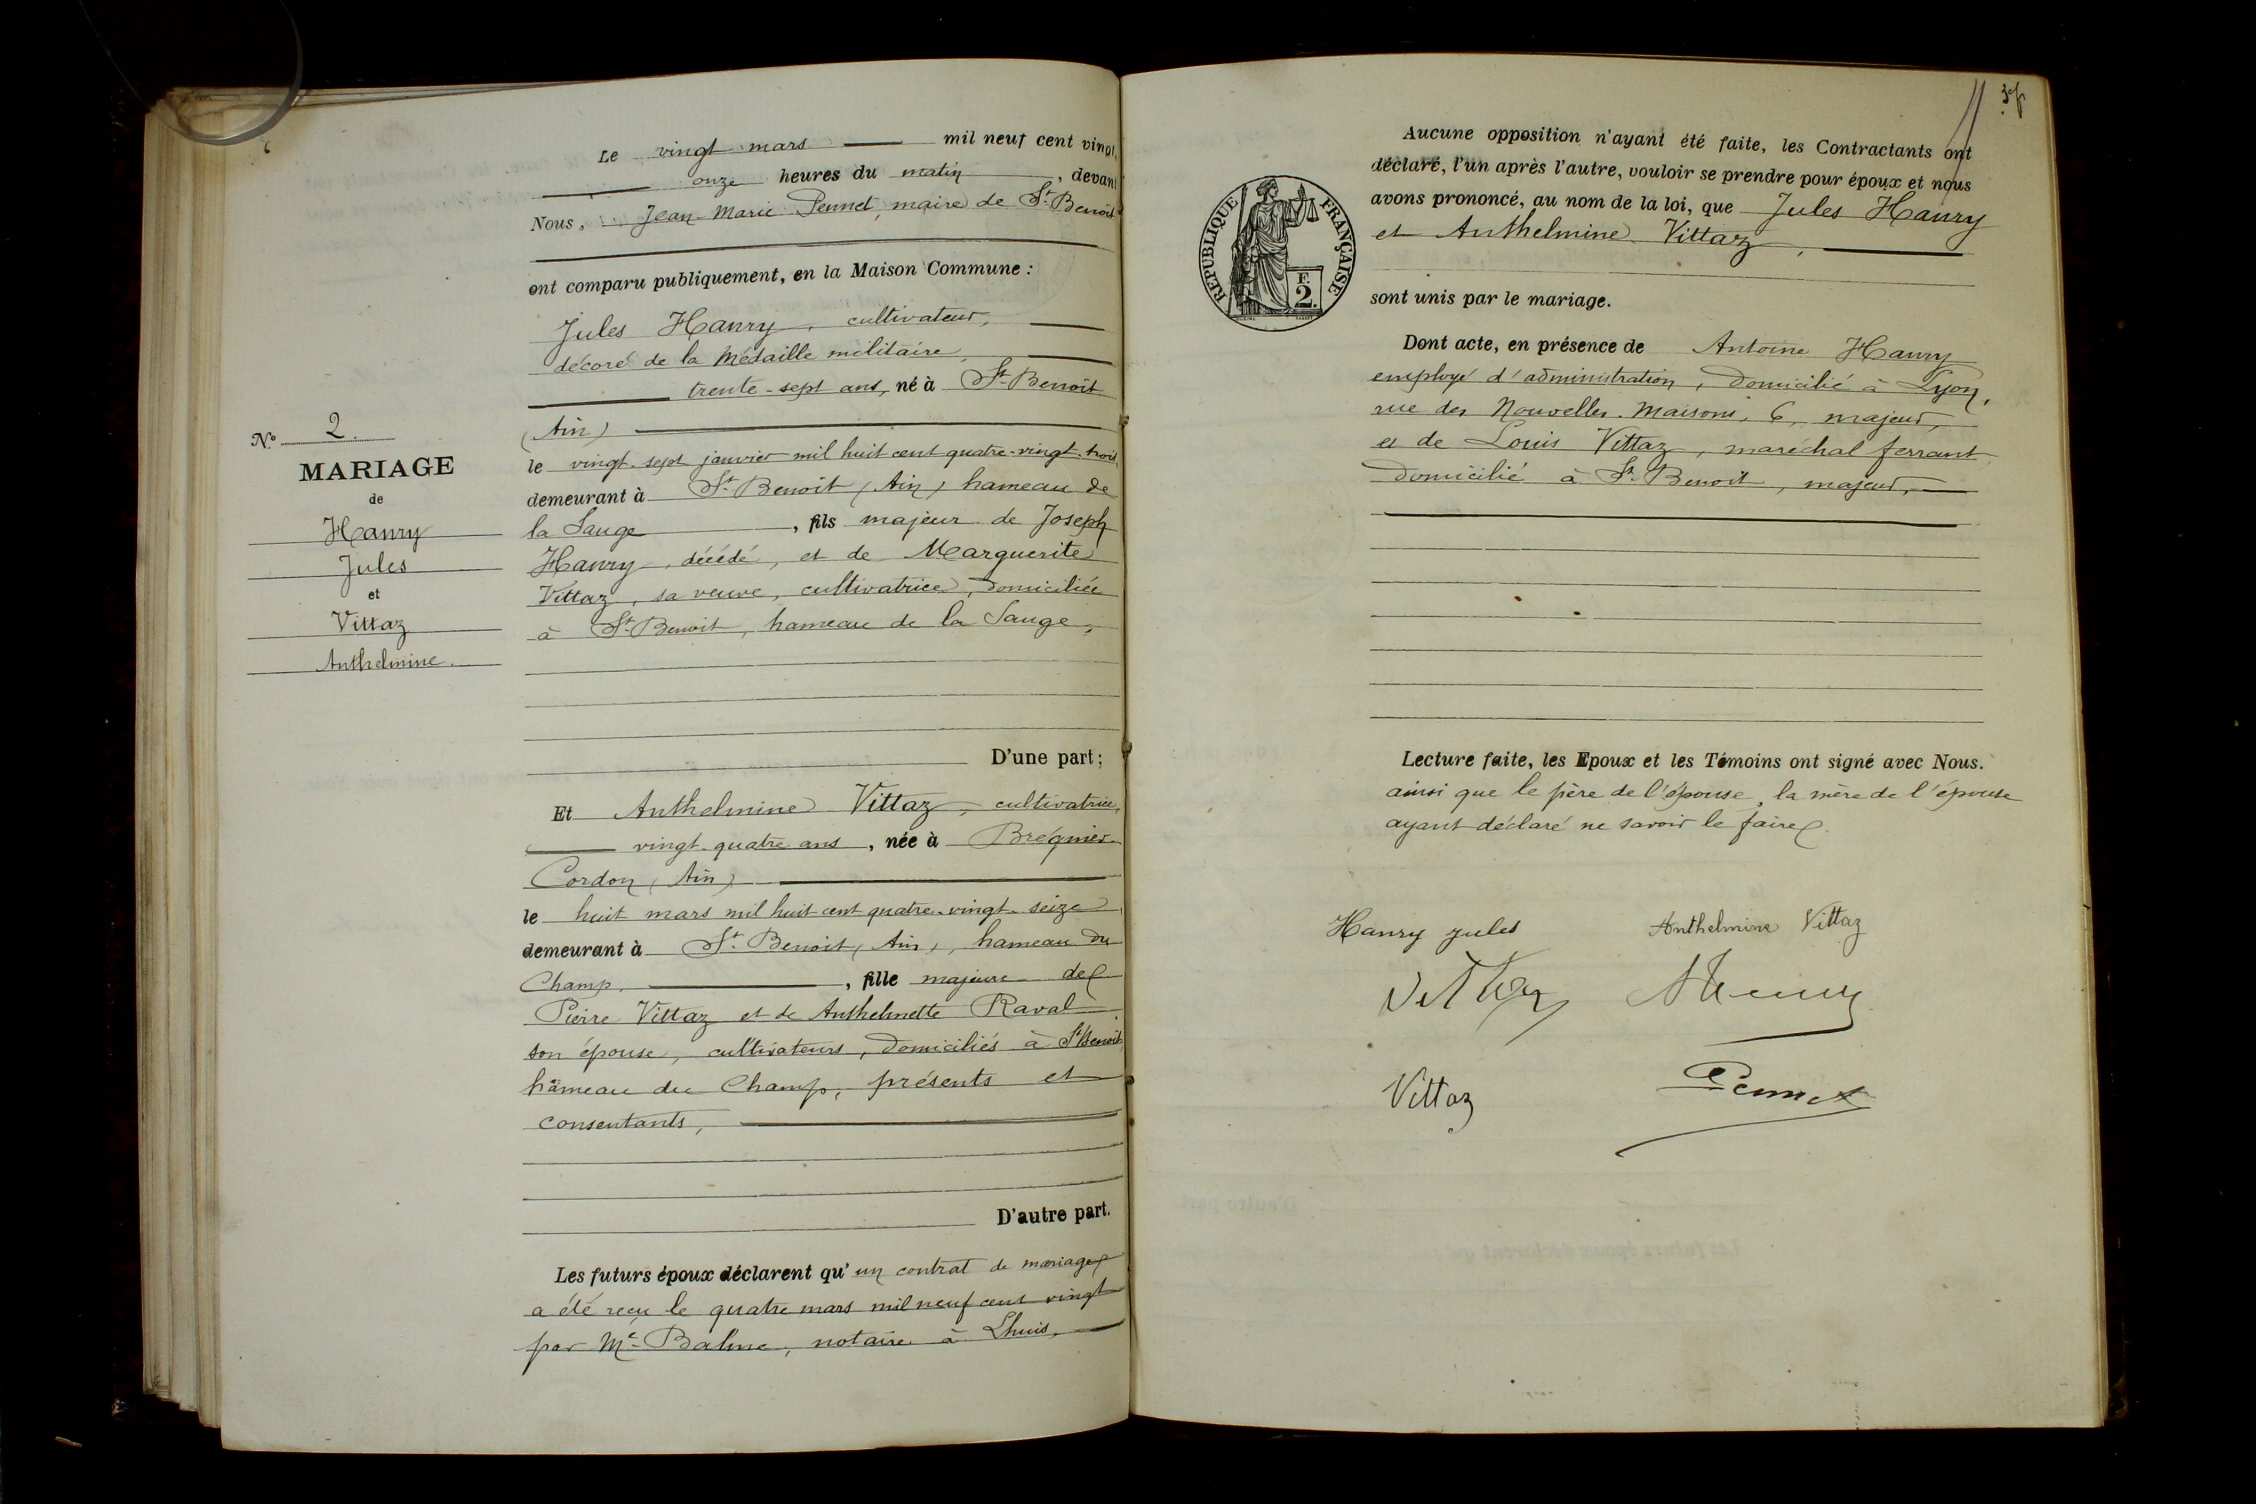 Le vingt mars mil neuf cent vingt,
onze heures du matin, devant
Nous, Jean-Marie Pennet, maire de St Benoit
ont comparu publiquement, en la Maison Commune :
Jules Hanry, cultivateur,
décoré de la Médaille militaire,
trente-sept ans, né à St-Benoit
(Ain)
le vingt-sept janvier mil huit cent quatre-vingt-trois,
demeurant à St Benoit (Ain) hameau de
la Sauge, fils majeur de Joseph
Hanry, décédé, et de Marguerite
Vittaz, sa veuve, cultivatrice, domiciliée
à St-Benoit, hameau de la Sauge,
D'une part ;
Et Anthelmine Vittaz, cultivatrice,
vingt-quatre ans, née à Brégnier-
Cordon (Ain)
le huit mars mil huit cent quatre-vingt-seize
demeurant à St-Benoit (Ain), hameau du
Champ, fille majeure de
Pierre Vittaz et de Anthelmette Raval
son épouse, cultivateurs, domiciliés à St Benoit,
hameau du Champ, présents et
consentants,
D'autre part.
Les futurs époux déclarent qu'un contrat de mariage
a été reçu le quatre mars mil neuf cent vingt
par Me Balme, notaire à Lhuis,
N° 2.
MARIAGE
de
Hanry
Jules
et
Vittaz
Anthelmine.
Aucune opposition n'ayant été faite, les Contractants ont
déclaré, l'un après l'autre, vouloir se prendre pour époux et nous
avons prononcé, au nom de la loi, que Jules Hanry
et Anthelmine Vittaz,
sont unis par le mariage.
RÉPUBLIQUE FRANÇAISE
F.
2.
Dont acte, en présence de Antoine Hanry
employé d'administration, domicilié à Lyon,
rue des Nouvelles-Maisons, 6, majeur,
et de Louis Vittaz, maréchal ferrant
domicilié à St-Benoit, majeur,
Lecture faite, les Epoux et les Témoins ont signé avec Nous.
ainsi que le père de l'épouse, la mère de l'épouse
ayant déclaré ne savoir le faire
Hanry Jules Anthelmine Vittaz
Vittaz
Vittaz Pennet